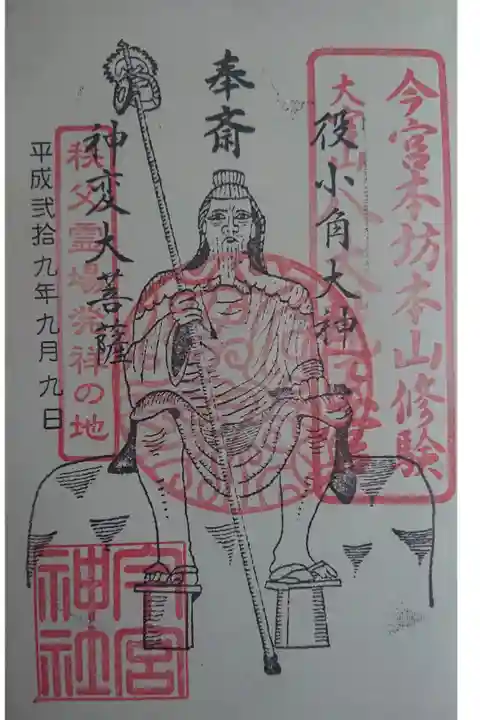 今宮本坊本山修験
役小角大神
奉斎
神変大菩薩
秩父霊場発祥の地
平成弐拾九年九月九日
今宮
神社